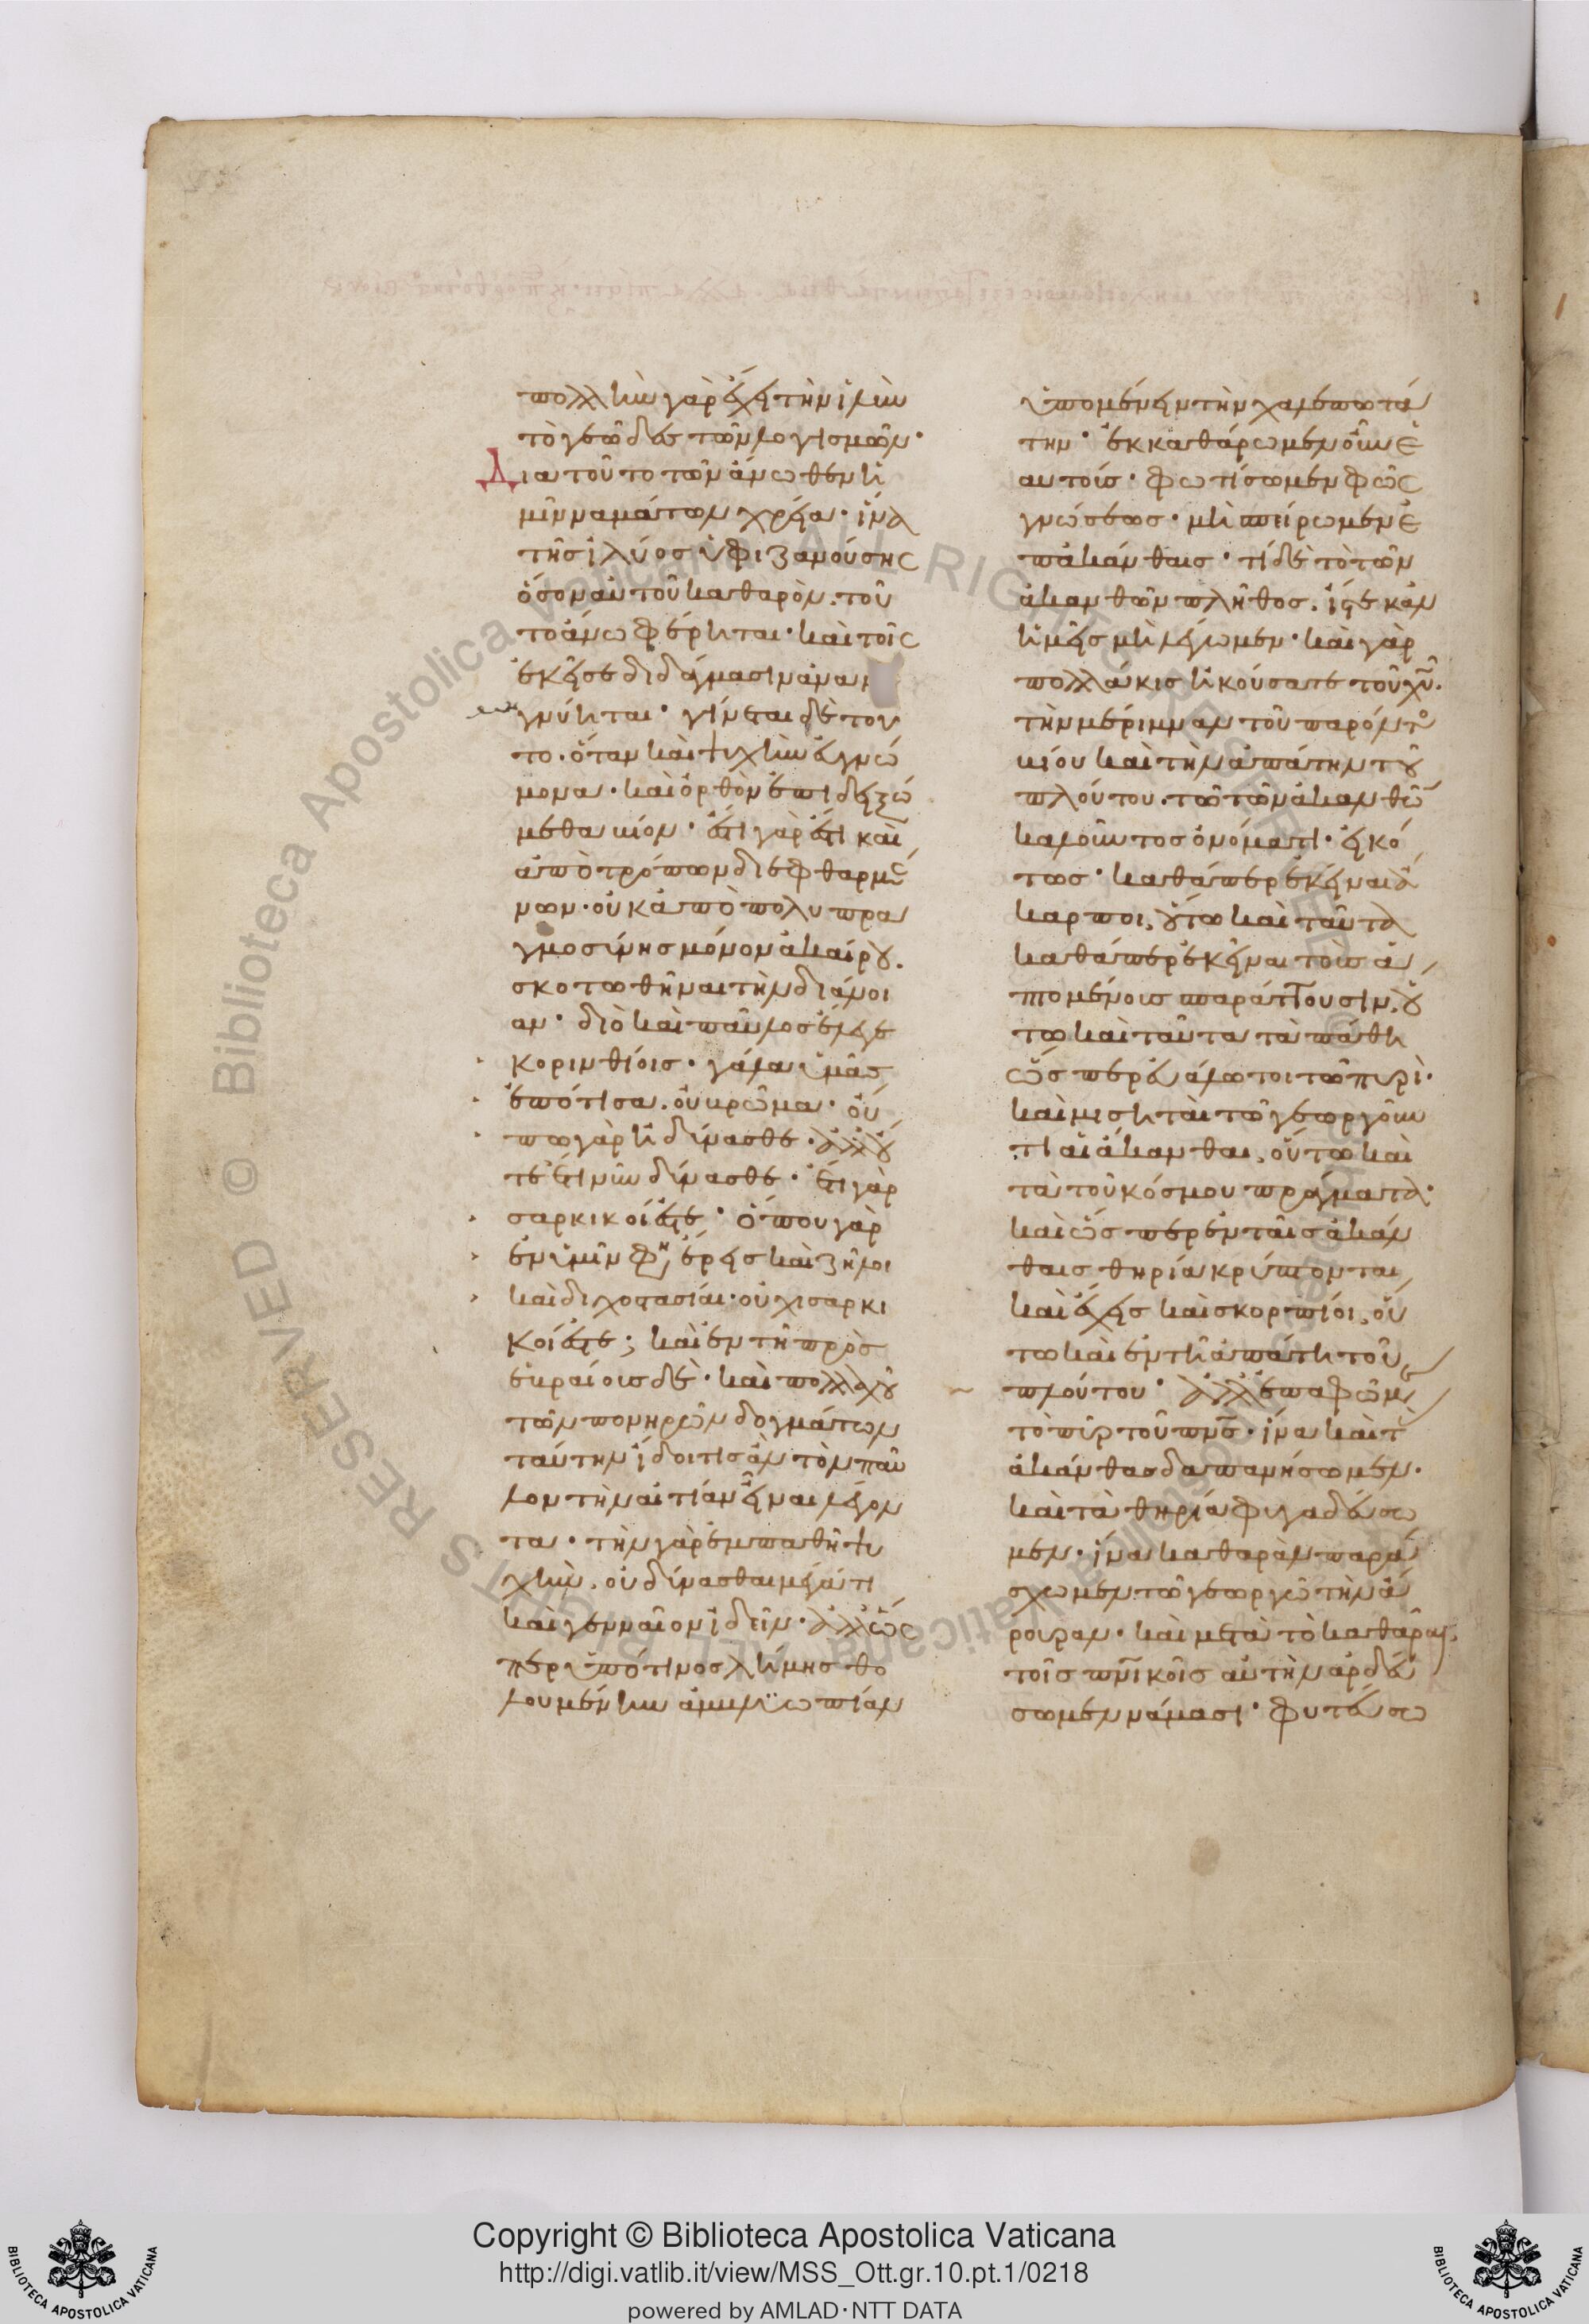 πολλὴν γὰρ ἔχει τὴν ἰλὺν
τὸ γεῶδες τῶν λογισμῶν·
Διατοῦτο τῶν ἄνωθεν ἡ
μῖν ναμάτων χρεία· ἵνα
τῆς ἰλύος ὑφιζανούσης
ὅσον αὐτοῦ καθαρὸν. τοῦ
το ἄνω φέρηται· καὶ τοῖς
ἐκεῖσε διδάγμασιν ἀναμ
γνύηται· γίνεται δὲ του
το. ὅταν καὶ ψυχὴν εὐγνώ
μονα. καὶ ὀρθὸν ἐπιδειξώ
μεθα βίον· ἔστι γὰρ ἔστι καὶ
ἀπὸ τρόπων διεφθαρμέ
νων. οὐκ ἀπὸ πολυπρα
γμοσύνης μόνον ἀκαίρου.
σκοτωθῆναι τὴν διάνοι
αν· διὸ καὶ παῦλος ἔλεγε
κορινθίοις· γάλα ὑμᾶς
ἐπότισα. οὐ βρῶμα· οὔ
πω γὰρ ἠδύνασθε. ἀλλ' οὔ
τε ἔτι νῦν δύνασθε· ἔτι γὰρ
σαρκικοί ἐστε· ὅπου γὰρ
ἐν ὑμῖν φη, ἔρεις καὶ ζῆλοι
καὶ διχοστασίαι. οὐχι σαρκι
κοί ἐστε; καὶ ἐν τῆ πρὸς
ἑβραίοις δὲ. καὶ πολλαχοῦ
τῶν πονηρῶν δογμάτων
ταύτην ἴδοι τις ἂν τὸν παῦ
λον τὴν αἰτίαν εἶναι λέγον
τα· τὴν γὰρ ἐμπαθῆ ψυ
χὴν. οὐ δύνασθαι μέγα τι
καὶ γενναῖον ἰδεῖν· ἀλλ' ὥς
περ ὑπό τινος λήμης θο
λουμένην ἀμβλυωπίαν
ὑπομένειν τὴν χαλεπωτά
την· ἐκκαθάρωμεν οὖν ἑ
αυτοίς· φωτίσωμεν φῶς
γνώσεως· μὴ σπείρωμεν ἐ
π' ἀκάνθαις· τί δὲ τὸ τῶν
ἀκανθῶν πλῆθος. ἴστε κἂν
ἡμεῖς μὴ λέγωμεν· καὶ γὰρ
πολλάκις ἠκούσατε τοῦ χυ.
τὴν μέριμναν τοῦ παρόντο
βίου καὶ τὴν ἀπάτην του
πλούτου. τῶ τῶν ἀκανθῶ
καλοῦντος ὀνόματι· εἰκό
τως· καθάπερ ἐκεῖναι ἄ
καρποι, οὕτω καὶ ταῦτα
καθάπερ ἐκεῖναι τοὺς ἁ
πτομένοις σπαράττουσιν, οὕ
τω καὶ ταῦτα τὰ πάθη
ὥσπερ εὐάλωτοι τῶ πυρὶ.
καὶ μισηταὶ τῶ γεωργοῦν
τι αἱ ἄκανθαι, οὕτω καὶ
τὰ τοῦ κόσμου πράγματα.
καὶ ὥσπερ ἐν ταῖς ἀκάν
θαις θηρία κρύπτονται
καὶ ἔχεις καὶ σκορπίοι, οὕ
τω καὶ ἐν τῆ ἀπάτη τοῦ
πλούτου· ἀλλ' ἐπαφῶμε
τὸ πῦρ τοῦ πνς. ἵνα καὶ τ
ἀκάνθας δαπανήσωμεν.
καὶ τὰ θηρία φυγαδεύσω
μεν. ἵνα καθαρὰν παρά
σχωμεν τῶ γεωργῶ τὴν ἄ
ρουραν. καὶ μετὰ τὸ καθᾶραι,
τοῖς πνικοῖς αὐτὴν ἀρδεύ
σωμεν νάμασι· φυτεύσω
Copyright © Biblioteca Apostolica Vaticana
http://digi.vatlib.it/view/MSS_Ott.gr.10.pt.1/0218
powered by AMLAD·NTT DATA